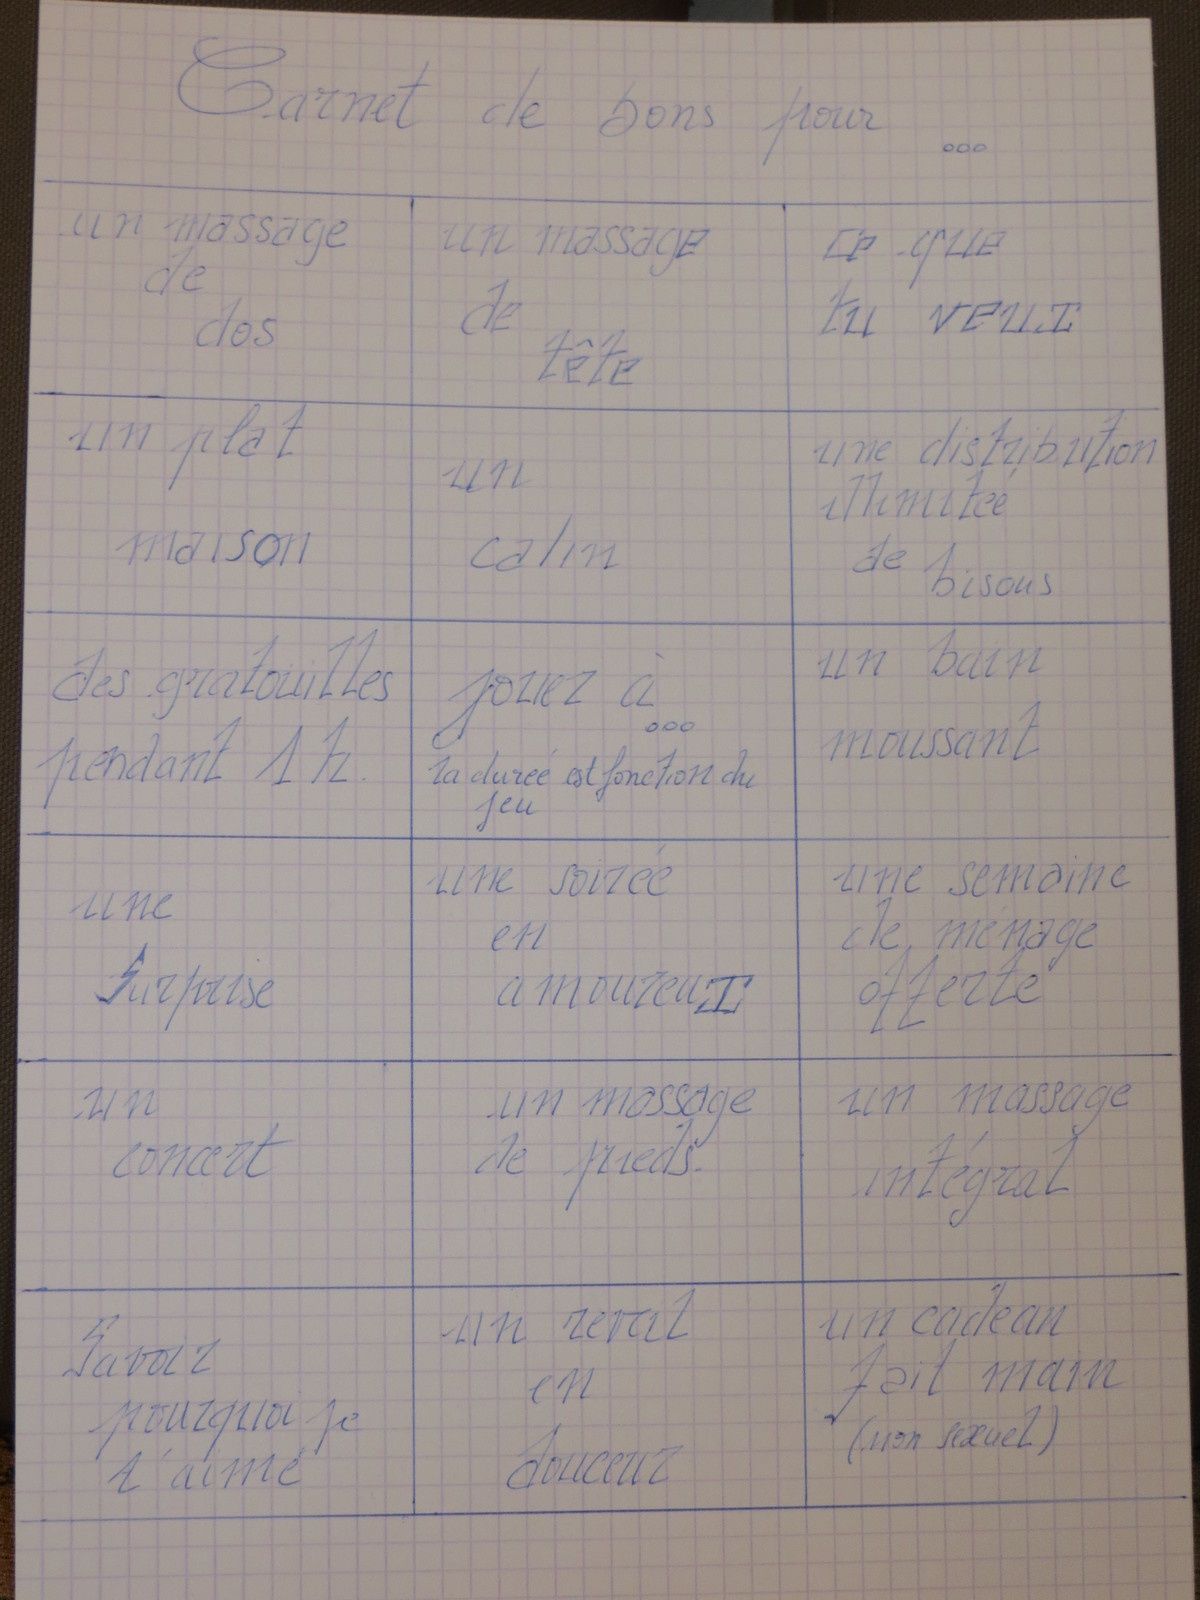 Carnet de bons pour ...
un massage
de
dos
un massage
de
tête
ce que
tu veux
un plat
maison
un
calin
une distribution
illimitée
de
bisous
des gratouilles
pendant 1h.
jouer à
...
la durée est fonction du
jeu
un bain
moussant
une
surprise
une soirée
en
amoureux
une semaine
de ménage
offerte
un
concert
un massage
de pieds.
un massage
intégral
Savoir
pourquoi je
t'aime
un reveil
en
douceur
un cadeau
fait main
(non sexuel)